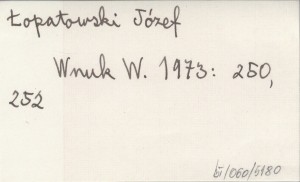 Łopatowski Józef
Wnuk W. 1973: 250,
252
bi/060/5180